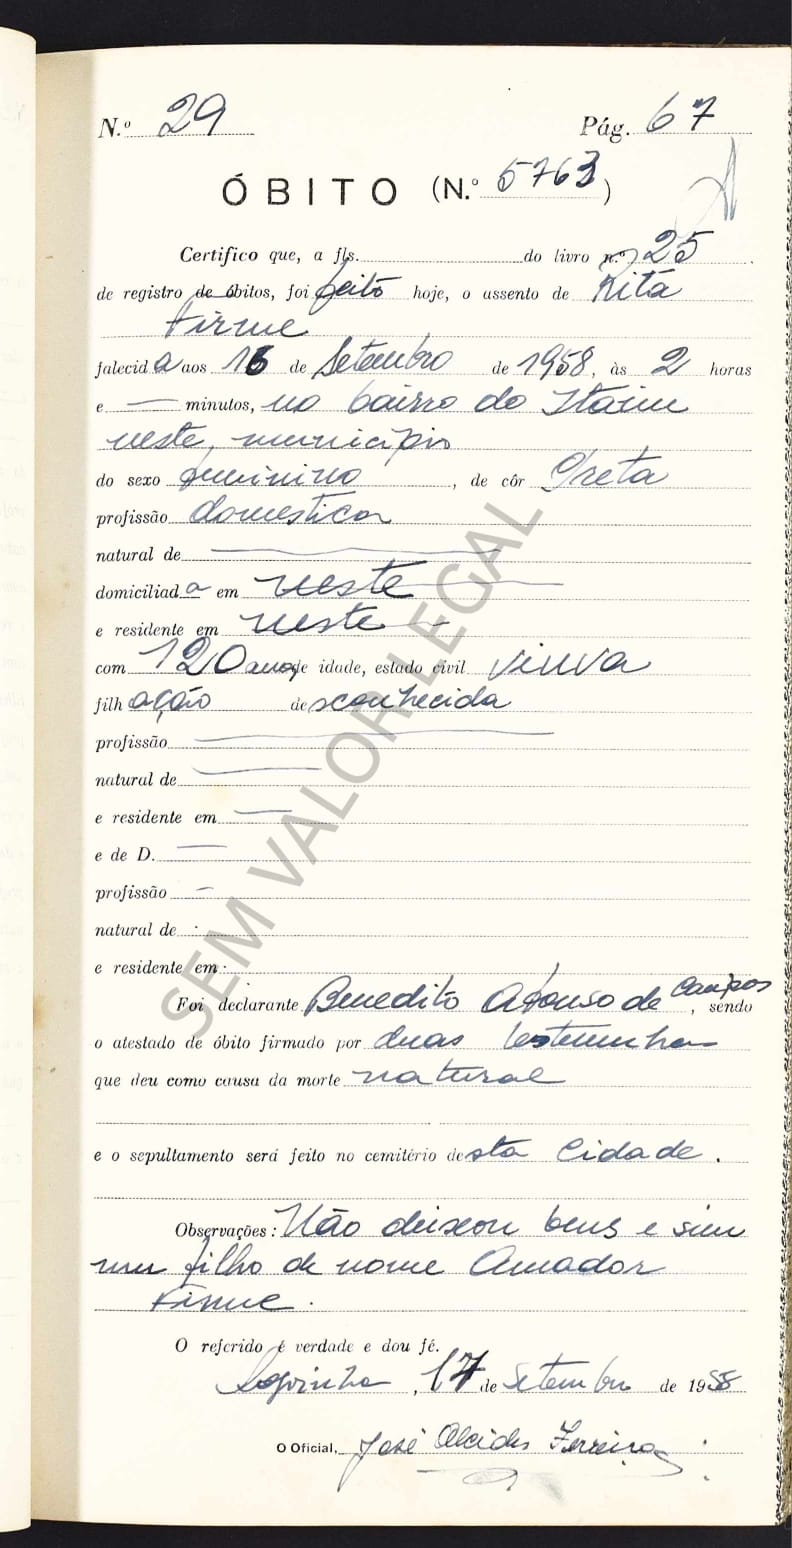 N.º 29 Pág. 67
ÓBITO (N.º 5763)
Certifico que, a fls. do livro n.º 25
de registro de óbitos, foi feito hoje, o assento de Rita
Firme
falecida aos 16 de Setembro de 1958, às 2 horas
e — minutos, no bairro do Itaim
neste, municipio
do sexo feminino, de côr Preta
profissão domestica
natural de
domiciliada em neste
e residente em neste
com 120 anos de idade, estado civil viuva
filhação desconhecida
profissão
natural de
e residente em
e de D.
profissão
natural de
e residente em
Foi declarante Benedito Afonso de Campos, sendo
o atestado de óbito firmado por duas testemunhas
que deu como causa da morte natural
e o sepultamento será feito no cemitério desta Cidade.
Observações: Não deixou bens e sim
um filho de nome Amador
Firme.
O referido é verdade e dou fé.
Lagoinha, 17 de Setembro de 1958
O Oficial, José Alcides Ferreira
SEM VALOR LEGAL